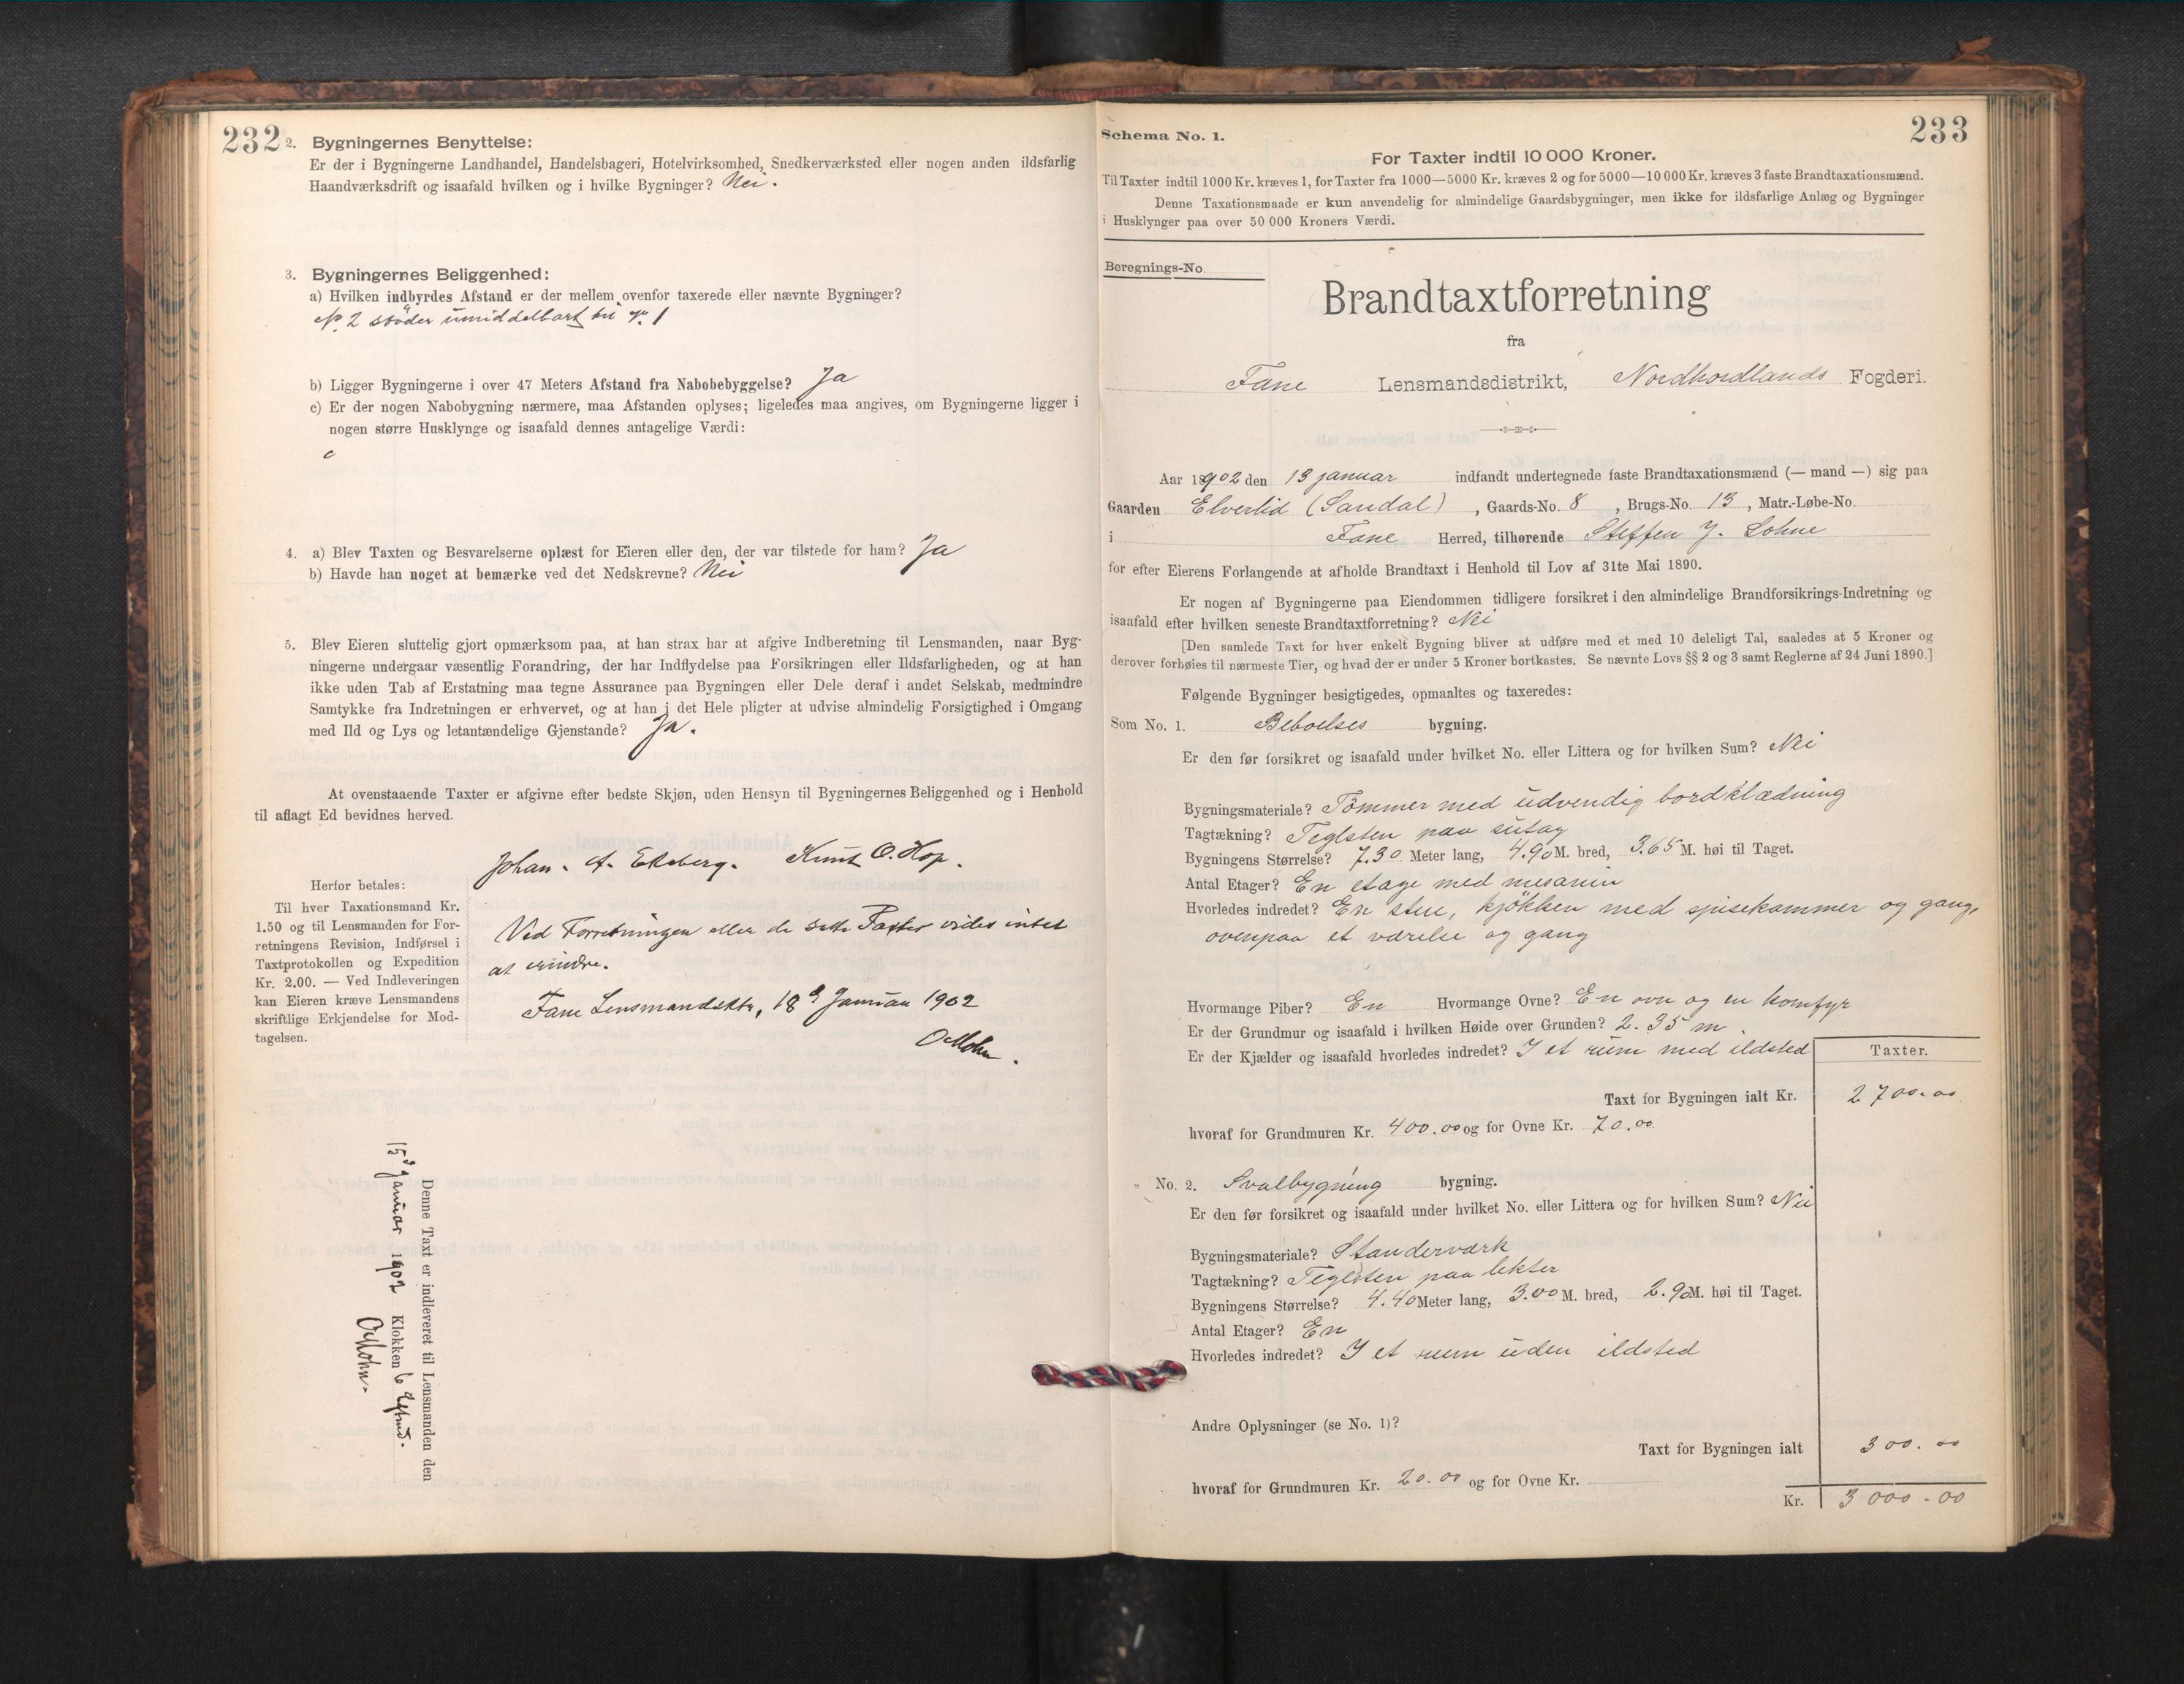 232
2. Bygningernes Benyttelse:
Er der i Bygningerne Landhandel, Handelsbageri, Hotelvirksomhed, Snedkerværksted eller nogen anden ildsfarlig
Haandværksdrift og isaafald hvilken og i hvilke Bygninger? Nei.
3. Bygningernes Beliggenhed:
a) Hvilken indbyrdes Afstand er der mellem ovenfor taxerede eller nævnte Bygninger?
No. 2 støder umiddelbart til No. 1
b) Ligger Bygningerne i over 47 Meters Afstand fra Nabobebyggelse? Ja
c) Er der nogen Nabobygning nærmere, maa Afstanden oplyses; ligeledes maa angives, om Bygningerne ligger i
nogen større Husklynge og isaafald dennes antagelige Værdi:
4. a) Blev Taxten og Besvarelserne oplæst for Eieren eller den, der var tilstede for ham? Ja
b) Havde han noget at bemærke ved det Nedskrevne? Nei
5. Blev Eieren sluttelig gjort opmærksom paa, at han strax har at afgive Indberetning til Lensmanden, naar Byg-
ningerne undergaar væsentlig Forandring, der har Indflydelse paa Forsikringen eller Ildsfarligheden, og at han
ikke uden Tab af Erstatning maa tegne Assurance paa Bygningen eller Dele deraf i andet Selskab, medmindre
Samtykke fra Indretningen er erhvervet, og at han i det Hele pligter at udvise almindelig Forsigtighed i Omgang
med Ild og Lys og letantændelige Gjenstande? Ja.
At ovenstaaende Taxter er afgivne efter bedste Skjøn, uden Hensyn til Bygningernes Beliggenhed og i Henhold
til aflagt Ed bevidnes herved.
Johan. A. Ekeberg. Knut O. Hop.
Herfor betales:
Til hver Taxationsmand Kr.
1.50 og til Lensmanden for For-
retningens Revision, Indførsel i
Taxtprotokollen og Expedition
Kr. 2.00. — Ved Indleveringen
kan Eieren kræve Lensmandens
skriftlige Erkjendelse for Mod-
tagelsen.
Ved Forretningen eller de satte Taxter vides intet
at erindre.
Fane Lensmandsktr, 18d Januar 1902
O Mohn.
Denne Taxt er indleveret til Lensmanden den
15d Januar 1902 Klokken 6 Eftmd.
O Mohn.
Schema No. 1.
233
For Taxter indtil 10 000 Kroner.
Til Taxter indtil 1000 Kr. kræves 1, for Taxter fra 1000—5000 Kr. kræves 2 og for 5000—10 000 Kr. kræves 3 faste Brandtaxationsmænd.
Denne Taxationsmaade er kun anvendelig for almindelige Gaardsbygninger, men ikke for ildsfarlige Anlæg og Bygninger
i Husklynger paa over 50 000 Kroners Værdi.
Beregnings-No.
Brandtaxtforretning
fra
Fane Lensmandsdistrikt, Nordhordlands Fogderi.
Aar 1902 den 13 januar indfandt undertegnede faste Brandtaxationsmænd (— mand —) sig paa
Gaarden Elverlid (Sandal), Gaards-No. 8, Brugs-No. 13, Matr.-Løbe-No.
i Fane Herred, tilhørende Steffen J. Lohne
for efter Eierens Forlangende at afholde Brandtaxt i Henhold til Lov af 31te Mai 1890.
Er nogen af Bygningerne paa Eiendommen tidligere forsikret i den almindelige Brandforsikrings-Indretning og
isaafald efter hvilken seneste Brandtaxtforretning? Nei
[Den samlede Taxt for hver enkelt Bygning bliver at udføre med et med 10 deleligt Tal, saaledes at 5 Kroner og
derover forhøies til nærmeste Tier, og hvad der er under 5 Kroner bortkastes. Se nævnte Lovs §§ 2 og 3 samt Reglerne af 24 Juni 1890.]
Følgende Bygninger besigtigedes, opmaaltes og taxeredes:
Som No. 1. Beboelses bygning.
Er den før forsikret og isaafald under hvilket No. eller Littera og for hvilken Sum? Nei
Bygningsmateriale? Tömmer med udvendig bordklædning
Tagtækning? Teglsten paa sutag
Bygningens Størrelse? 7.30 Meter lang, 4.90 M. bred, 3.65 M. høi til Taget.
Antal Etager? En etage med mesanin
Hvorledes indredet? En stue, kjökken med spisekammer og gang,
ovenpaa et værelse og gang
Hvormange Piber? En Hvormange Ovne? En ovn og en komfyr
Er der Grundmur og isaafald i hvilken Høide over Grunden? 2.35 m.
Er der Kjælder og isaafald hvorledes indredet? I et rum med ildsted
Taxter.
Taxt for Bygningen ialt Kr. 2700.00
hvoraf for Grundmuren Kr. 400.00 og for Ovne Kr. 70.00
" No. 2. Svalbygning bygning.
Er den før forsikret og isaafald under hvilket No. eller Littera og for hvilken Sum? Nei
Bygningsmateriale? Standerværk
Tagtækning? Teglsten paa lekter
Bygningens Størrelse? 4.40 Meter lang, 3.00 M. bred, 2.90 M. høi til Taget.
Antal Etager? En
Hvorledes indredet? I et rum uden ildsted
Andre Oplysninger (se No. 1)?
Taxt for Bygningen ialt 300.00
hvoraf for Grundmuren Kr. 20.00 og for Ovne Kr.
Kr. 3000.00